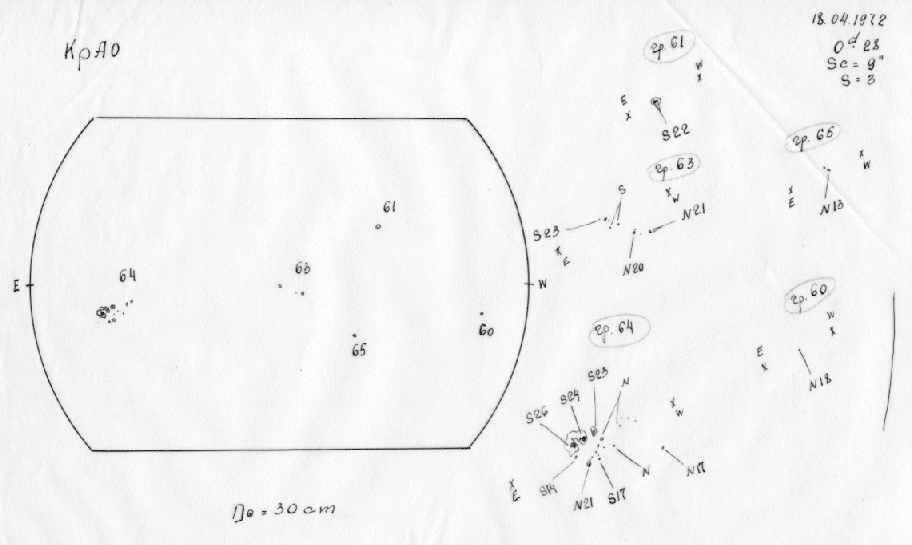 КрАО
18.04.1972
Sc = 9"
S = 3
гр. 61
E
W
S22
гр. 63
S
S23
E
W
N21
N20
гр. 65
E
W
N13
61
64
63
65
60
E
W
гр. 64
S26
S24
S23
N
W
E
S14
N21
S17
N
N17
гр. 60
E
W
N18
D⊙ = 30 cm